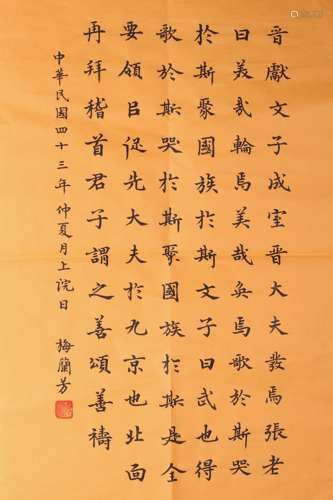 晉獻文子成室晉大夫發焉張老
曰美哉輪焉美哉奐焉歌於斯哭
於斯聚國族於斯文子曰武也得
歌於斯哭於斯聚國族於斯是全
要領㠯從先大夫於九京也北面
再拜稽首君子謂之善頌善禱
中華民國四十三年仲夏月上浣日 梅蘭芳